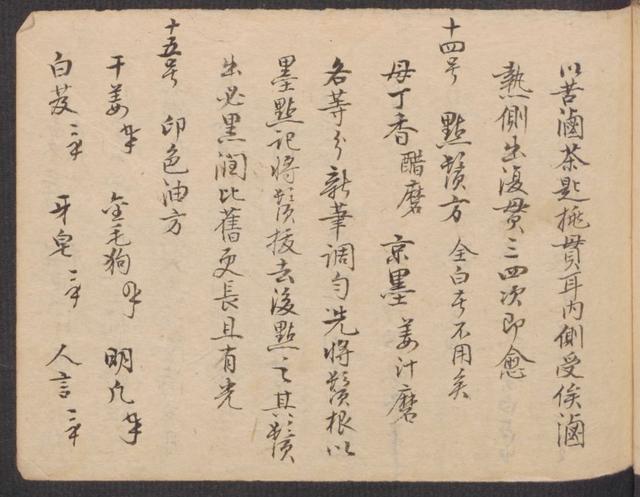 以苦滷茶匙挑貫耳內側受俟滷
熱側出復貫三四次即愈
十四号 點鬚方 全白者不用矣
母丁香 醋磨 京墨 姜汁磨
各等分新筆調勻先將鬚根以
墨點記將鬚拔去後點之其鬚
出必黑潤比舊更長且有光
十五号 印色油方
干姜 金毛狗 明凡
白芨 牙皂 人言